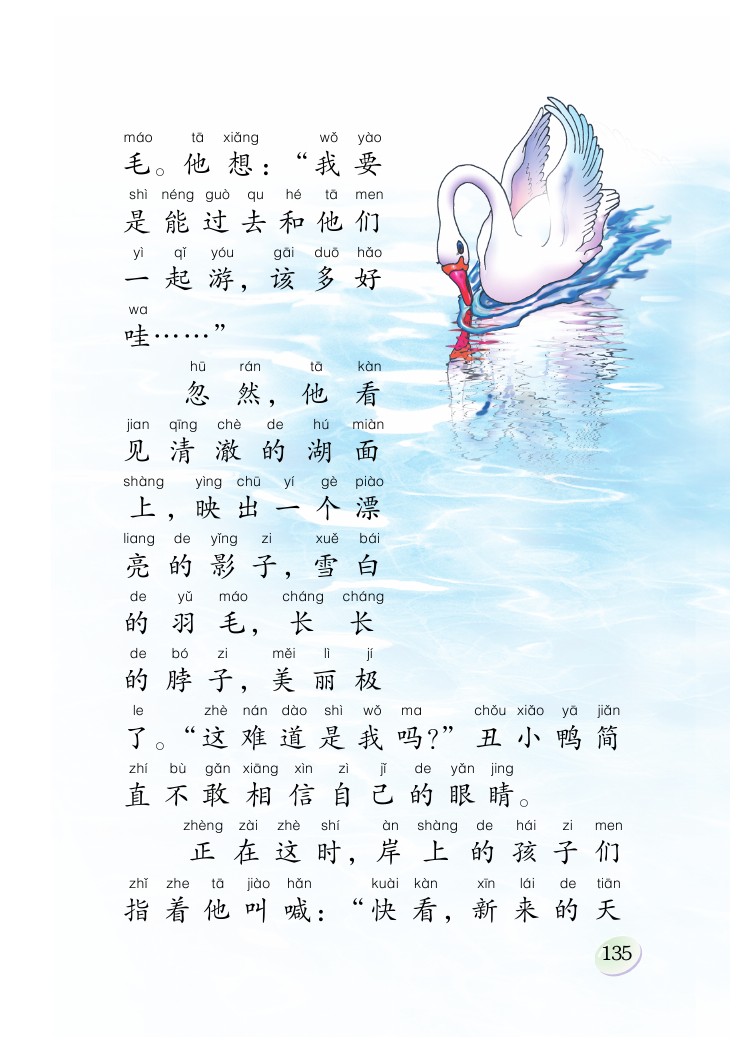 máo tā xiǎng wǒ yào
毛。他想：“我要
shì néng guò qu hé tā men
是能过去和他们
yì qǐ yóu gāi duō hǎo
一起游，该多好
wa
哇……”
hū rán tā kàn
忽然，他看
jian qīng chè de hú miàn
见清澈的湖面
shàng yìng chū yí gè piào
上，映出一个漂
liang de yǐng zi xuě bái
亮的影子，雪白
de yǔ máo cháng cháng
的羽毛，长长
de bó zi měi lì jí
的脖子，美丽极
le zhè nán dào shì wǒ ma chǒu xiǎo yā jiǎn
了。“这难道是我吗?”丑小鸭简
zhí bù gǎn xiāng xìn zì jǐ de yǎn jing
直不敢相信自己的眼睛。
zhèng zài zhè shí àn shàng de hái zi men
正在这时，岸上的孩子们
zhǐ zhe tā jiào hǎn kuài kàn xīn lái de tiān
指着他叫喊：“快看，新来的天
135